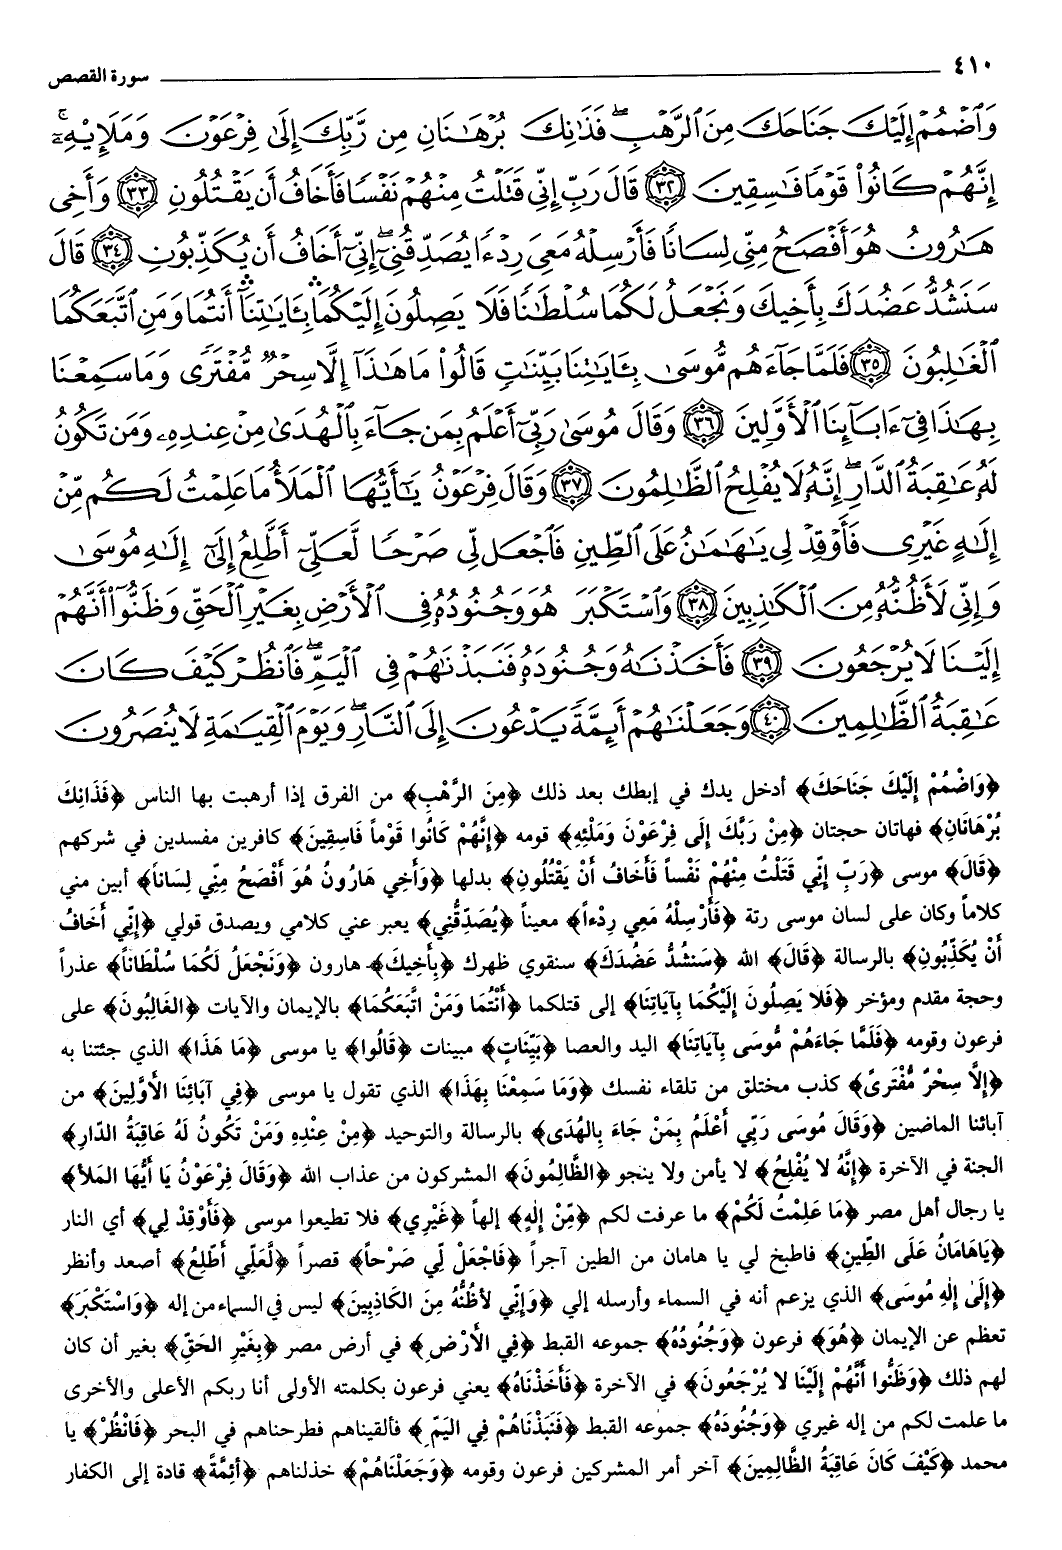 ٤١٠ سورة القصص
وَٱضْمُمْ إِلَيْكَ جَنَاحَكَ مِنَ ٱلرَّهْبِ ۖ فَذَٰنِكَ بُرْهَـٰنَانِ مِن رَّبِّكَ إِلَىٰ فِرْعَوْنَ وَمَلَإِي۟هِۦٓ ۚ
إِنَّهُمْ كَانُوا۟ قَوْمًا فَـٰسِقِينَ ٣٢ قَالَ رَبِّ إِنِّى قَتَلْتُ مِنْهُمْ نَفْسًا فَأَخَافُ أَن يَقْتُلُونِ ٣٣ وَأَخِى
هَـٰرُونُ هُوَ أَفْصَحُ مِنِّى لِسَانًا فَأَرْسِلْهُ مَعِىَ رِدْءًا يُصَدِّقُنِىٓ ۖ إِنِّىٓ أَخَافُ أَن يُكَذِّبُونِ ٣٤ قَالَ
سَنَشُدُّ عَضُدَكَ بِأَخِيكَ وَنَجْعَلُ لَكُمَا سُلْطَـٰنًا فَلَا يَصِلُونَ إِلَيْكُمَا ۛ بِـَٔايَـٰتِنَآ ۛ أَنتُمَا وَمَنِ ٱتَّبَعَكُمَا
ٱلْغَـٰلِبُونَ ٣٥ فَلَمَّا جَآءَهُم مُّوسَىٰ بِـَٔايَـٰتِنَا بَيِّنَـٰتٍ قَالُوا۟ مَا هَـٰذَآ إِلَّا سِحْرٌ مُّفْتَرًى وَمَا سَمِعْنَا
بِهَـٰذَا فِىٓ ءَابَآئِنَا ٱلْأَوَّلِينَ ٣٦ وَقَالَ مُوسَىٰ رَبِّىٓ أَعْلَمُ بِمَن جَآءَ بِٱلْهُدَىٰ مِنْ عِندِهِۦ وَمَن تَكُونُ
لَهُۥ عَـٰقِبَةُ ٱلدَّارِ ۖ إِنَّهُۥ لَا يُفْلِحُ ٱلظَّـٰلِمُونَ ٣٧ وَقَالَ فِرْعَوْنُ يَـٰٓأَيُّهَا ٱلْمَلَأُ مَا عَلِمْتُ لَكُم مِّنْ
إِلَـٰهٍ غَيْرِى فَأَوْقِدْ لِى يَـٰهَـٰمَـٰنُ عَلَى ٱلطِّينِ فَٱجْعَل لِّى صَرْحًا لَّعَلِّىٓ أَطَّلِعُ إِلَىٰٓ إِلَـٰهِ مُوسَىٰ
وَإِنِّى لَأَظُنُّهُۥ مِنَ ٱلْكَـٰذِبِينَ ٣٨ وَٱسْتَكْبَرَ هُوَ وَجُنُودُهُۥ فِى ٱلْأَرْضِ بِغَيْرِ ٱلْحَقِّ وَظَنُّوٓا۟ أَنَّهُمْ
إِلَيْنَا لَا يُرْجَعُونَ ٣٩ فَأَخَذْنَـٰهُ وَجُنُودَهُۥ فَنَبَذْنَـٰهُمْ فِى ٱلْيَمِّ ۖ فَٱنظُرْ كَيْفَ كَانَ
عَـٰقِبَةُ ٱلظَّـٰلِمِينَ ٤٠ وَجَعَلْنَـٰهُمْ أَئِمَّةً يَدْعُونَ إِلَى ٱلنَّارِ ۖ وَيَوْمَ ٱلْقِيَـٰمَةِ لَا يُنصَرُونَ
﴿وَاضْمُمْ إِلَيْكَ جَنَاحَكَ﴾ أدخل يدك في إبطك بعد ذلك ﴿مِنَ الرَّهْبِ﴾ من الفرق إذا أرهبت بها الناس ﴿فَذَانِكَ
بُرْهَانَانِ﴾ فهاتان حجتان ﴿مِنْ رَبِّكَ إِلَى فِرْعَوْنَ وَمَلَئِهِ﴾ قومه ﴿إِنَّهُمْ كَانُوا قَوْماً فَاسِقِينَ﴾ كافرين مفسدين في شركهم
﴿قَالَ﴾ موسى ﴿رَبِّ إِنِّي قَتَلْتُ مِنْهُمْ نَفْساً فَأَخَافُ أَنْ يَقْتُلُونِ﴾ بدلها ﴿وَأَخِي هَارُونُ هُوَ أَفْصَحُ مِنِّي لِسَاناً﴾ أبين مني
كلاماً وكان على لسان موسى رتة ﴿فَأَرْسِلْهُ مَعِي رِدْءاً﴾ معيناً ﴿يُصَدِّقُنِي﴾ يعبر عني كلامي ويصدق قولي ﴿إِنِّي أَخَافُ
أَنْ يُكَذِّبُونِ﴾ بالرسالة ﴿قَالَ﴾ الله ﴿سَنَشُدُّ عَضُدَكَ﴾ سنقوي ظهرك ﴿بِأَخِيكَ﴾ هارون ﴿وَنَجْعَلُ لَكُمَا سُلْطَاناً﴾ عذراً
وحجة مقدم ومؤخر ﴿فَلَا يَصِلُونَ إِلَيْكُمَا بِآيَاتِنَا﴾ إلى قتلكما ﴿أَنْتُمَا وَمَنْ اتَّبَعَكُمَا﴾ بالإيمان والآيات ﴿الغَالِبُونَ﴾ على
فرعون وقومه ﴿فَلَمَّا جَاءَهُمْ مُّوسَى بِآيَاتِنَا﴾ اليد والعصا ﴿بَيِّنَاتٍ﴾ مبينات ﴿قَالُوا﴾ يا موسى ﴿مَا هَذَا﴾ الذي جئتنا به
﴿إِلاَّ سِحْرٌ مُّفْتَرىً﴾ كذب مختلق من تلقاء نفسك ﴿وَمَا سَمِعْنَا بِهَذَا﴾ الذي تقول يا موسى ﴿فِي آبَائِنَا الأَوَّلِينَ﴾ من
آبائنا الماضين ﴿وَقَالَ مُوسَى رَبِّي أَعْلَمُ بِمَنْ جَاءَ بِالهُدَى﴾ بالرسالة والتوحيد ﴿مِنْ عِنْدِهِ وَمَنْ تَكُونُ لَهُ عَاقِبَةُ الدّارِ﴾
الجنة في الآخرة ﴿إِنَّهُ لا يُفْلِحُ﴾ لا يأمن ولا ينجو ﴿الظَّالِمُونَ﴾ المشركون من عذاب الله ﴿وَقَالَ فِرْعَوْنُ يَا أَيُّهَا المَلأ﴾
يا رجال أهل مصر ﴿مَا عَلِمْتُ لَكُمْ﴾ ما عرفت لكم ﴿مِّنْ إِلٰهٍ﴾ إلهاً ﴿غَيْرِي﴾ فلا تطيعوا موسى ﴿فَأَوْقِدْ لِي﴾ أي النار
﴿يَاهَامَانُ عَلَى الطِّينِ﴾ فاطبخ لي يا هامان من الطين آجراً ﴿فَاجْعَلْ لِّي صَرْحاً﴾ قصراً ﴿لَّعَلِّي أَطَّلِعُ﴾ أصعد وأنظر
﴿إِلَىٰ إِلٰهِ مُوسَى﴾ الذي يزعم أنه في السماء وأرسله إلي ﴿وَإِنِّي لأَظُنُّهُ مِنَ الكَاذِبِينَ﴾ ليس في السماء من إله ﴿وَاسْتَكْبَرَ﴾
تعظم عن الإيمان ﴿هُوَ﴾ فرعون ﴿وَجُنُودُهُ﴾ جموعه القبط ﴿فِي الأَرْضِ﴾ في أرض مصر ﴿بِغَيْرِ الحَقِّ﴾ بغير أن كان
لهم ذلك ﴿وَظَنُّوا أَنَّهُمْ إِلَيْنَا لا يُرْجَعُونَ﴾ في الآخرة ﴿فَأَخَذْنَاهُ﴾ يعني فرعون بكلمته الأولى أنا ربكم الأعلى والأخرى
ما علمت لكم من إله غيري ﴿وَجُنُودَهُ﴾ جموعه القبط ﴿فَنَبَذْنَاهُمْ فِي اليَمِّ﴾ فألقيناهم فطرحناهم في البحر ﴿فَانْظُرْ﴾ يا
محمد ﴿كَيْفَ كَانَ عَاقِبَةُ الظَّالِمِينَ﴾ آخر أمر المشركين فرعون وقومه ﴿وَجَعَلْنَاهُمْ﴾ خذلناهم ﴿أَئِمَّةً﴾ قادة إلى الكفار